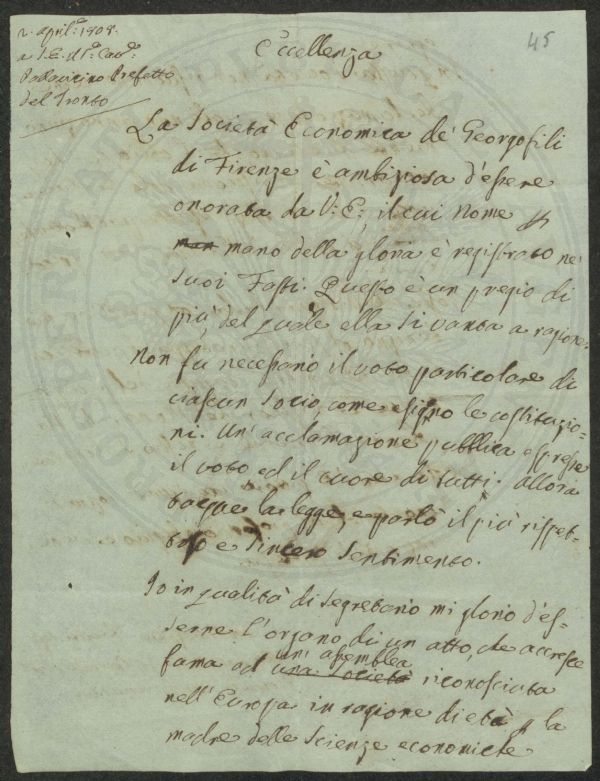 2. april.e 1808.
a S.E. il S.r Cav.e
Pallavicino Prefetto
del Tronto
45
Eccellenza
La Società Economica de' Georgofili
di Firenze è ambiziosa d'essere
onorata da V: E:, il cui nome per
mano della gloria è registrato ne'
suoi Fasti. Questo è un pregio di
più, del quale ella si vanta a ragione.
Non fu necessario il voto particolare di
ciascun Socio, come esigono le costituzio-
ni. Un' acclamazione pubblica espresse
il voto, ed il cuore di tutti. Allora
tacque la legge, e parlò il più rispet-
toso e sincero sentimento.
Io in qualità di Segretario mi glorio d'es-
serne l'organo di un atto, che accresce
fama ad una Società un' assemblea riconosciuta
nell' Europa in ragione di età per la
madre delle Scienze economiche